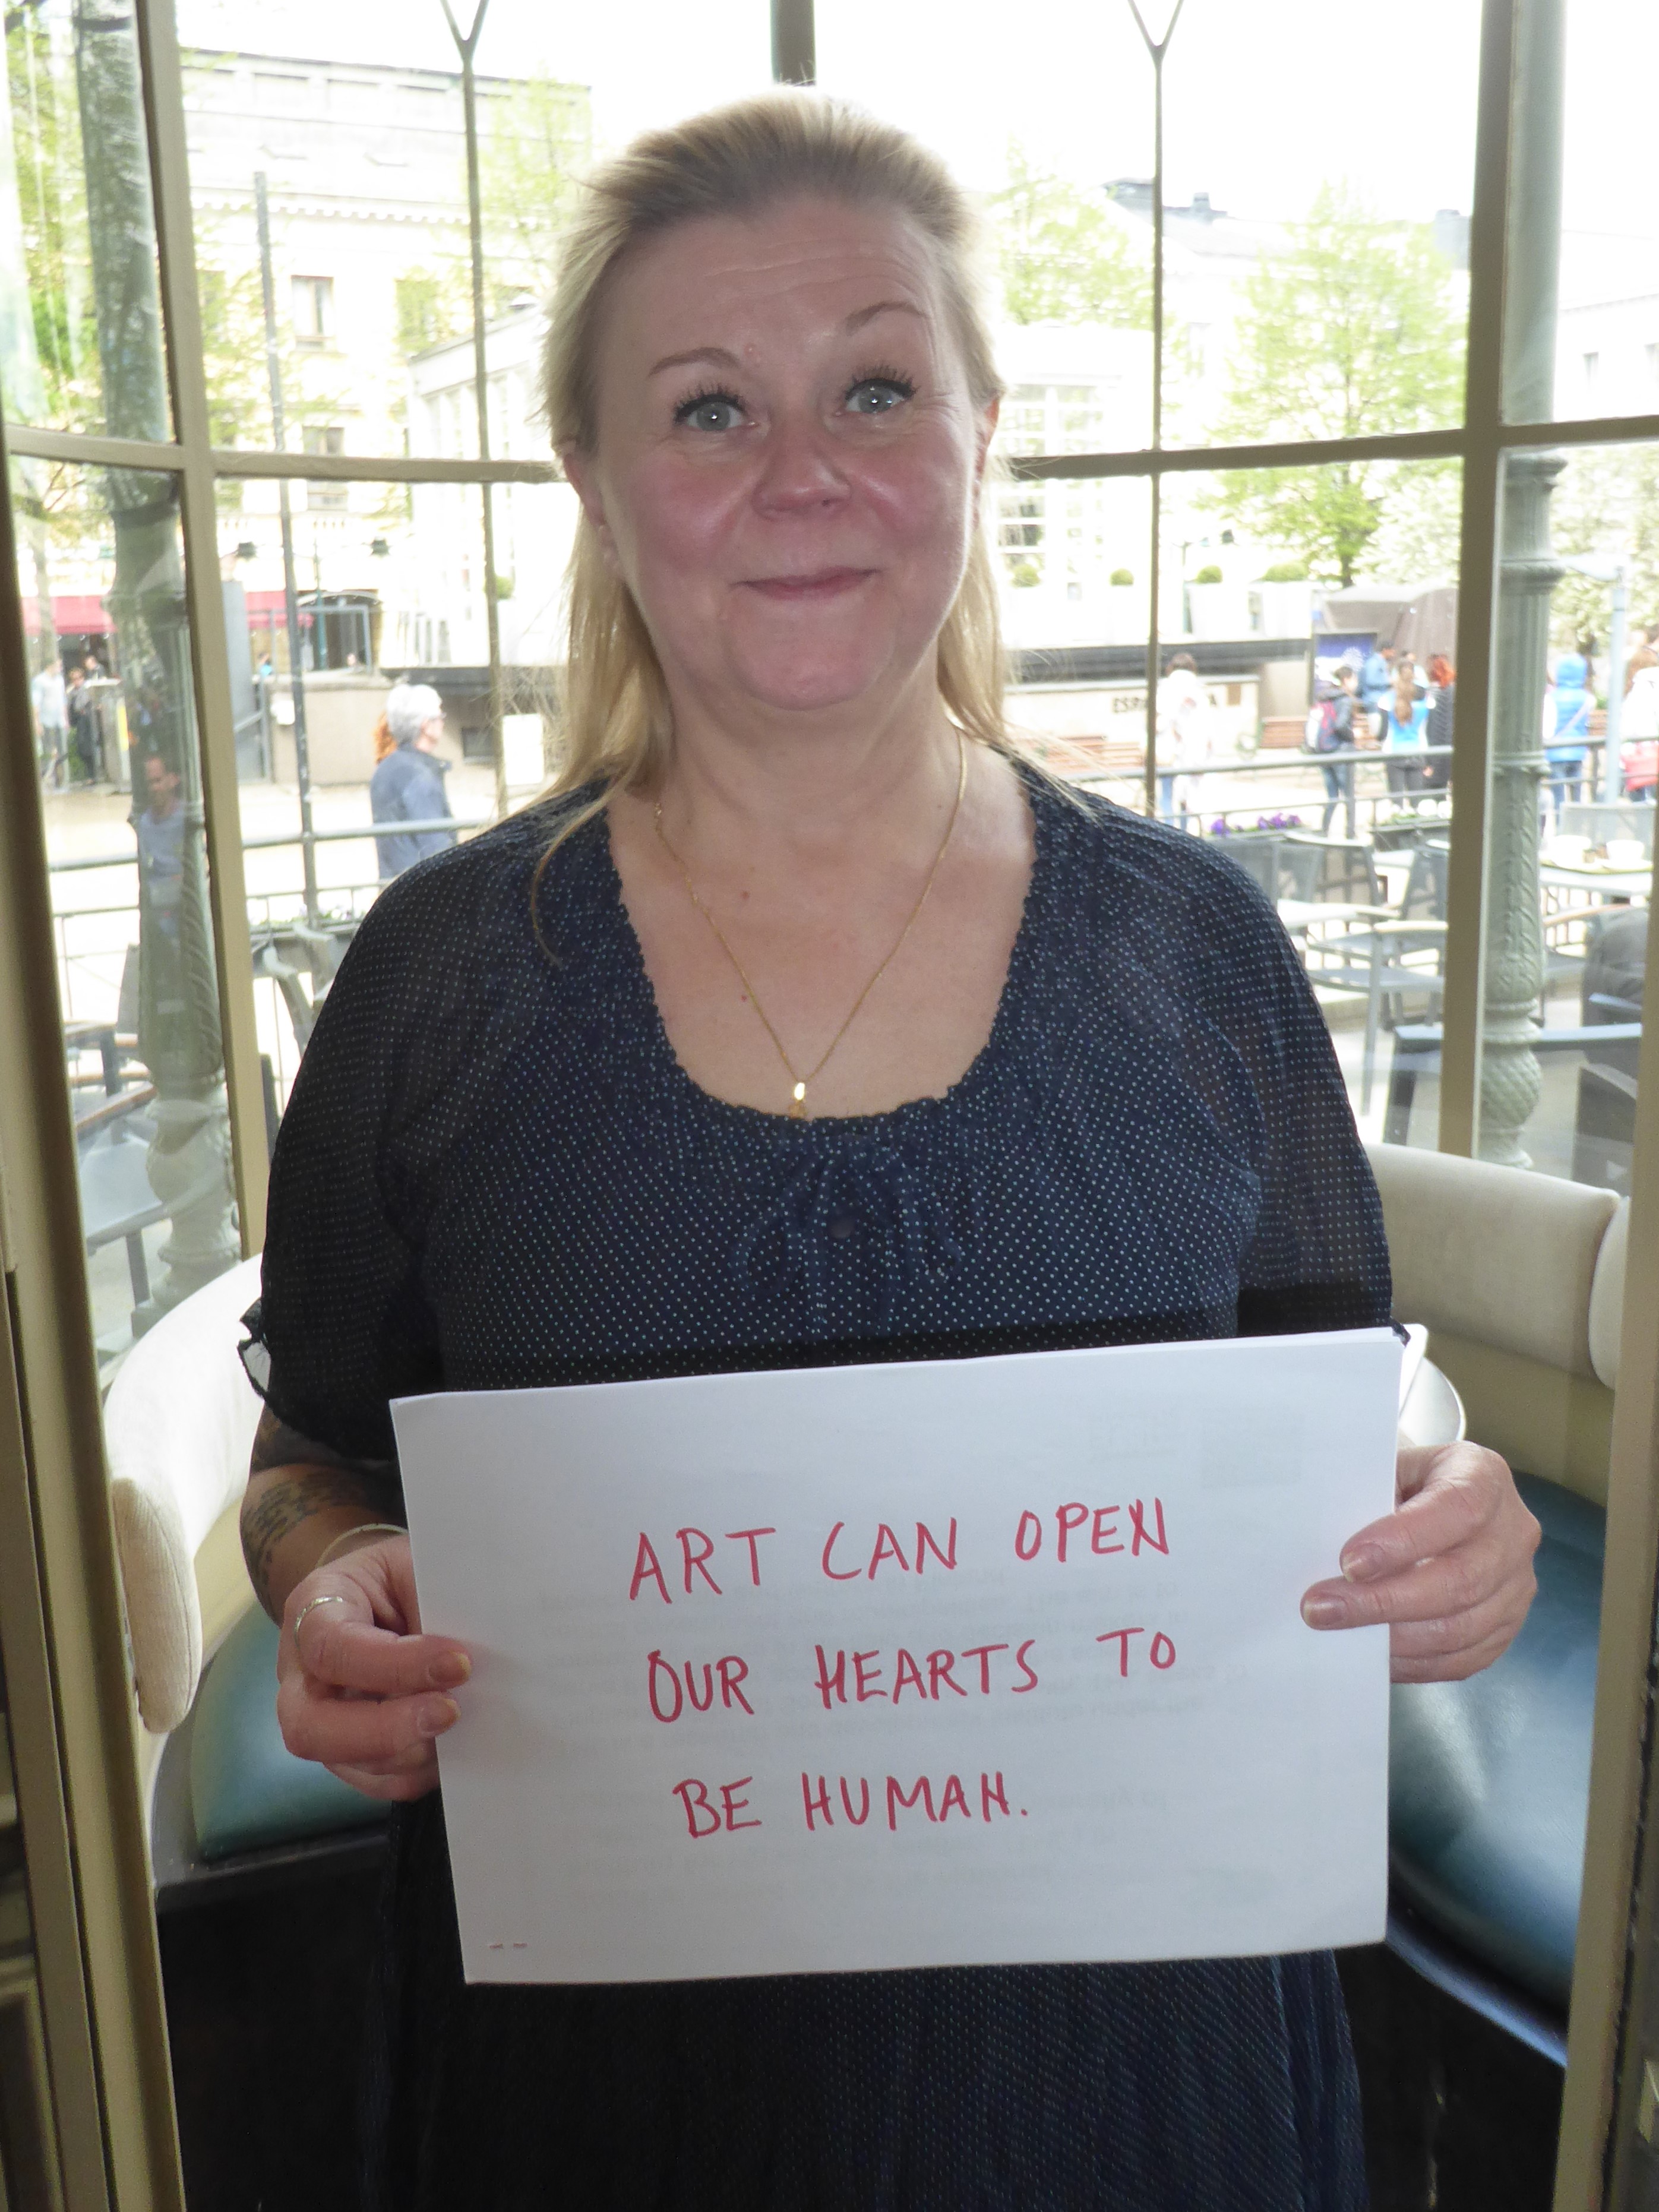 ART CAN OPEN
OUR HEARTS TO
BE HUMAN.